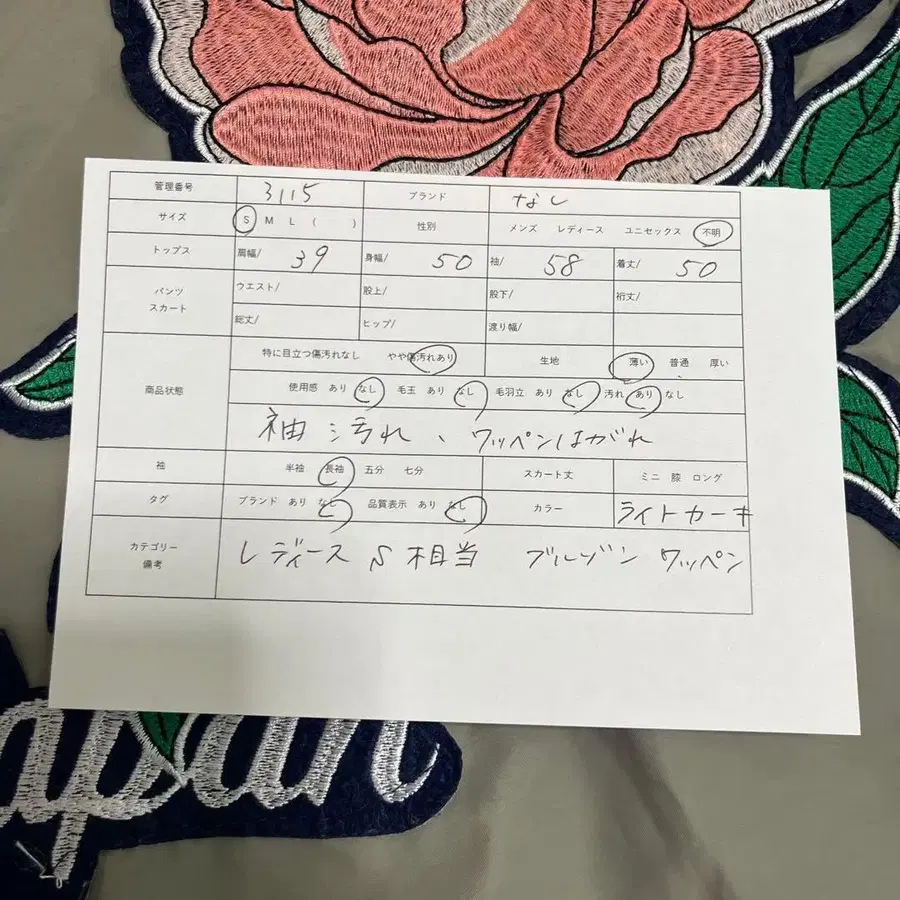 管理番号 3115 ブランド なし
サイズ S M L ( ) 性別 メンズ レディース ユニセックス 不明
トップス 肩幅/ 39 身幅/ 50 袖/ 58 着丈/ 50
パンツ スカート ウエスト/ 股上/ 股下/ 裄丈/
総丈/ ヒップ/ 渡り幅/
商品状態 特に目立つ傷汚れなし やや傷汚れあり 生地 薄い 普通 厚い
使用感 あり なし 毛玉 あり なし 毛羽立 あり なし 汚れ あり なし
袖 汚れ、ワッペンはがれ
袖 半袖 長袖 五分 七分 スカート丈 ミニ 膝 ロング
タグ ブランド あり なし 品質表示 あり なし カラー ライトカーキ
カテゴリー 備考 レディース S 相当 ブルゾン ワッペン
apan